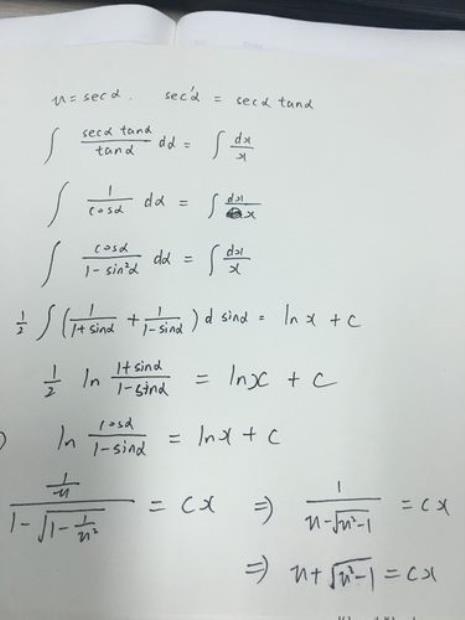 u = secα. sec'α = secα tanα
∫ secα tanα / tanα dα = ∫ dx/x
∫ 1/cosα dα = ∫ dx/x
∫ cosα / (1 - sin²α) dα = ∫ dx/x
1/2 ∫ (1/(1+sinα) + 1/(1-sinα)) d sinα = ln x + C
1/2 ln (1+sinα)/(1-sinα) = ln x + C
ln cosα/(1-sinα) = ln x + C
(1/u) / (1 - √(1 - 1/u²)) = Cx ⇒ 1/(u - √(u²-1)) = Cx
⇒ u + √(u²-1) = Cx